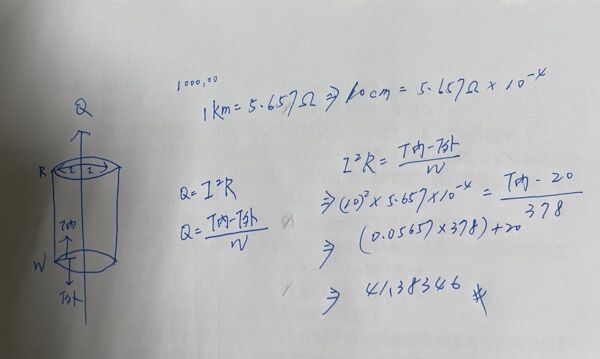 1000,00
1km = 5.657Ω ⇒ 10cm = 5.657Ω × 10⁻⁴
Q
R
2 2
T內
W
T外
Q = I²R
Q = T內-T外/W
I²R = T內-T外/W
⇒ (10)² × 5.657 × 10⁻⁴ = T內-20/378
⇒ (0.05657×378)+20
⇒ 41.38346 #